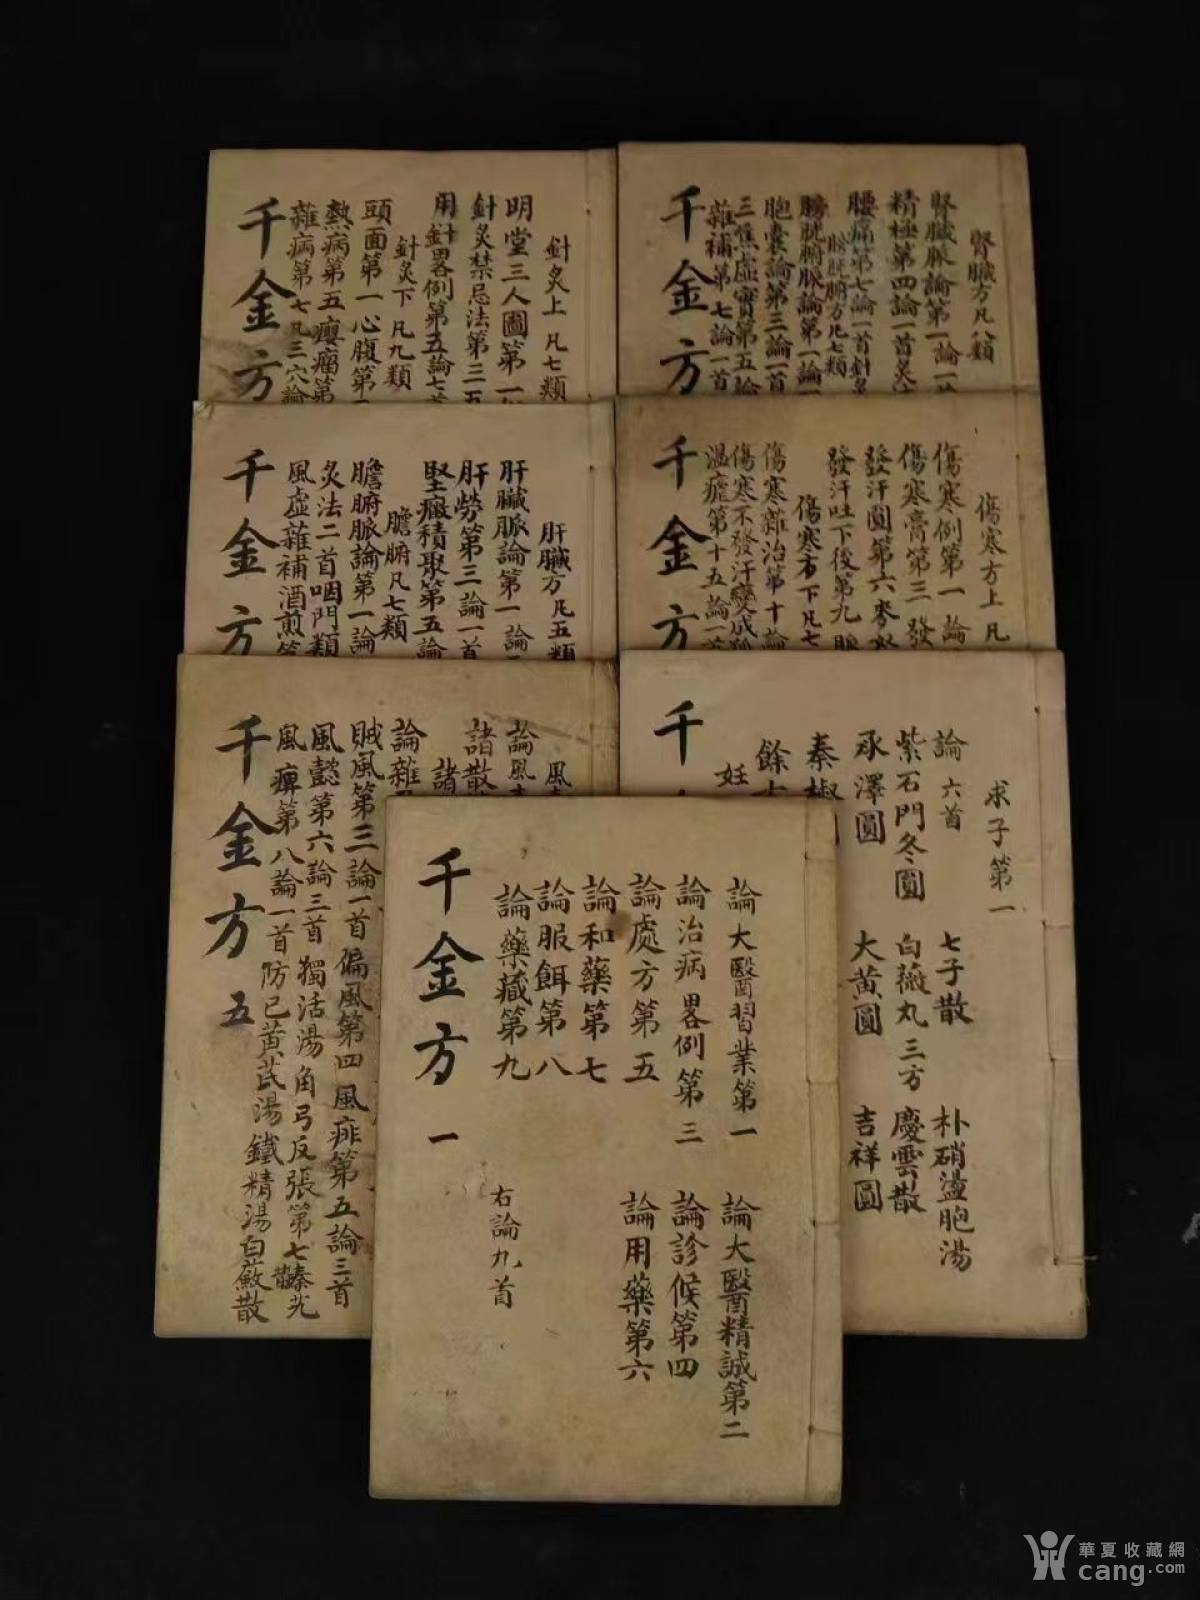 針灸上 凡七類
明堂三人圖第一
針灸禁忌法第三
用針畧例第五論七首
針灸下 凡九類
頭面第一心腹第
熱病第五 癭瘤第
雜病第七凡三穴論
千金方
腎臟方凡八類
腎臟脈論第一論一
精極第四論一首灸
腰痛第七論一首針灸
膀胱腑方凡七類
膀胱腑脈論第一論
胞囊論第三論一首
三焦虛實第五論
雜補第七論一首
千金方
肝臟方 凡五類
肝臟脈論第一論
肝勞第三論一首
堅癥積聚第五論
膽腑凡七類
膽腑脈論第一論
灸法二首咽門類
風虛雜補酒煎第
千金方
傷寒方上 凡
傷寒例第一 論
傷寒膏第三 發
發汗圓第六
發汗吐下後第九
傷寒方下凡七
傷寒雜治第十論
傷寒不發汗變成狐
溫瘧第十五論一首
千金方
論風
諸散
諸
論雜
賊風第三論一首 偏風第四 風痱第五論三首
風懿第六論三首 獨活湯 角弓反張第七
風痹第八論一首 防已黃芪湯 鐵精湯 白蘞散
千金方 五
求子第一
論六首 七子散 朴硝盪胞湯
紫石門冬圓 白薇丸三方 慶雲散
承澤圓 大黃圓 吉祥圓
秦椒
餘
妊
千
論大醫習業第一 論大醫精誠第二
論治病畧例第三 論診候第四
論處方第五 論用藥第六
論和藥第七
論服餌第八
論藥藏第九
右論九首
千金方 一
華夏收藏網
cang.com